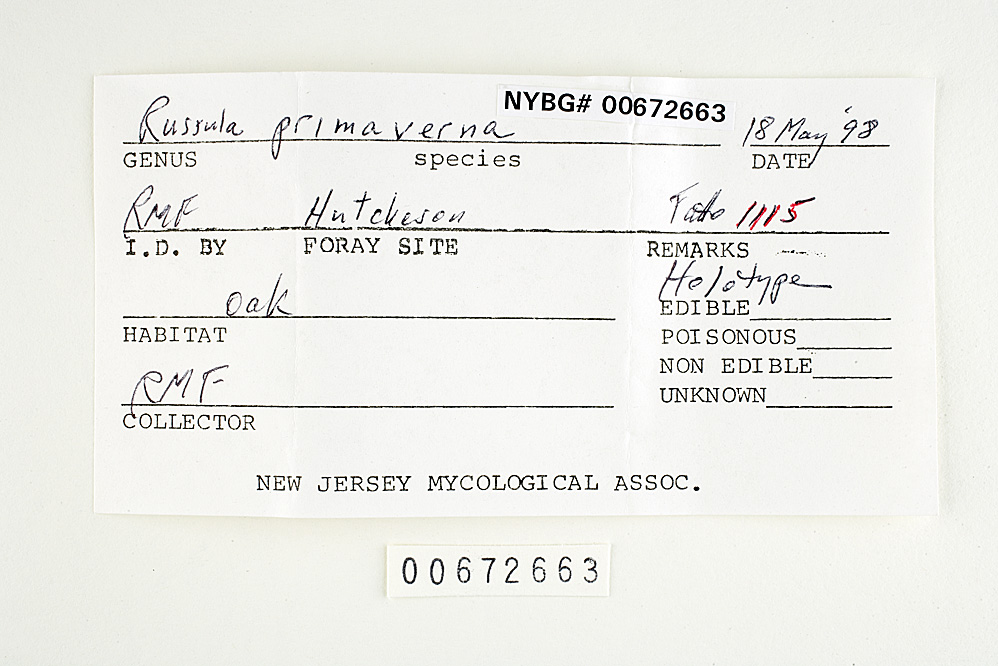 NYBG# 00672663
Russula primaverna 18 May '98
GENUS species DATE
RMF Hutcheson Fatto 1115
I.D. BY FORAY SITE REMARKS
Holotype
oak EDIBLE
HABITAT POISONOUS
NON EDIBLE
RMF UNKNOWN
COLLECTOR
NEW JERSEY MYCOLOGICAL ASSOC.
00672663